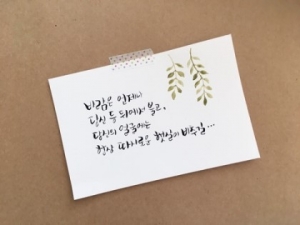 바람은 언제나
당신 등 뒤에서 불고,
당신의 얼굴에는
항상 따사로운 햇살이 비추길...